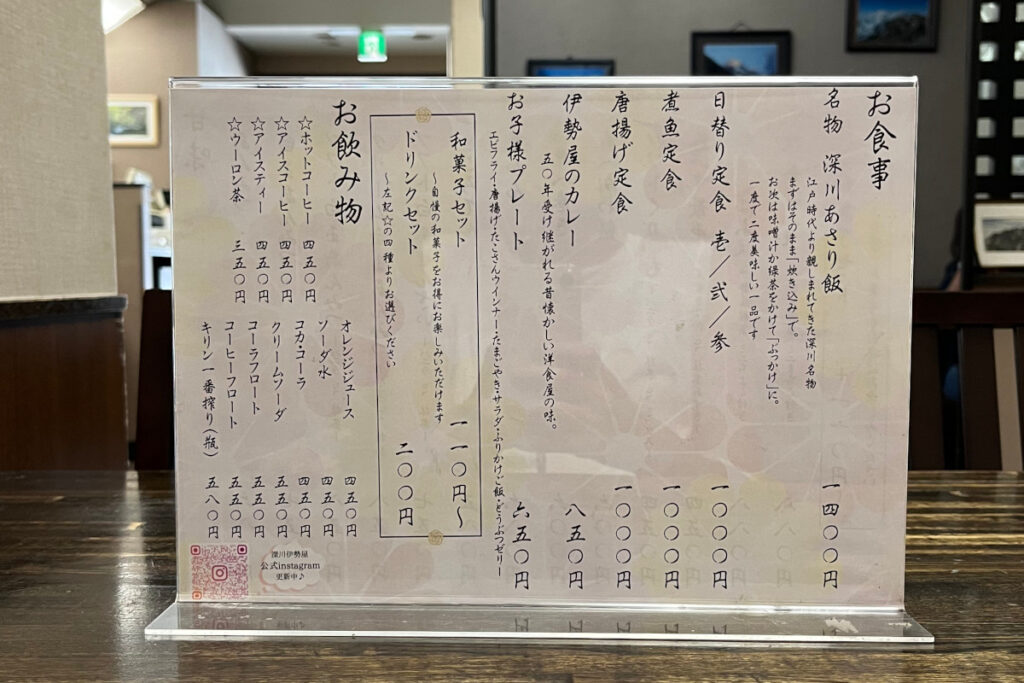 お食事
名物 深川あさり飯 一四〇〇円
江戸時代より親しまれてきた深川名物
まずはそのまま「炊き込み」で。
お次は味噌汁か緑茶をかけて「ぶっかけ」に。
一度で二度美味しい一品です
日替り定食 壱／弐／参 一〇〇〇円
煮魚定食 一〇〇〇円
唐揚げ定食 一〇〇〇円
伊勢屋のカレー 八五〇円
五〇年受け継がれる昔懐かしい洋食屋の味。
お子様プレート 六五〇円
エビフライ・唐揚げ・たこさんウインナー・たまごやき・サラダ・ふりかけご飯・どうぶつゼリー
和菓子セット 一一〇円～
～自慢の和菓子をお得にお楽しみいただけます
ドリンクセット 二〇〇円
～左記☆の四種よりお選びください
お飲み物
☆ホットコーヒー 四五〇円
☆アイスコーヒー 四五〇円
☆アイスティー 四五〇円
☆ウーロン茶 三五〇円
オレンジジュース 四五〇円
ソーダ水 四五〇円
コカ・コーラ 四五〇円
クリームソーダ 五五〇円
コーラフロート 五五〇円
コーヒーフロート 五五〇円
キリン一番搾り（瓶） 五八〇円
深川伊勢屋
公式instagram
更新中♪